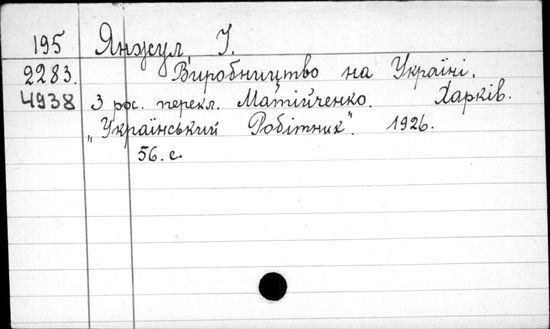 195 Янжул І.
2283. Виробництво на Україні.
4938 З рос. перекл. Матійченко. Харків.
„Український Робітник". 1926.
56. с.